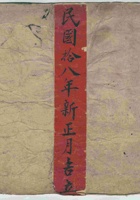 民国拾八年新正月吉立